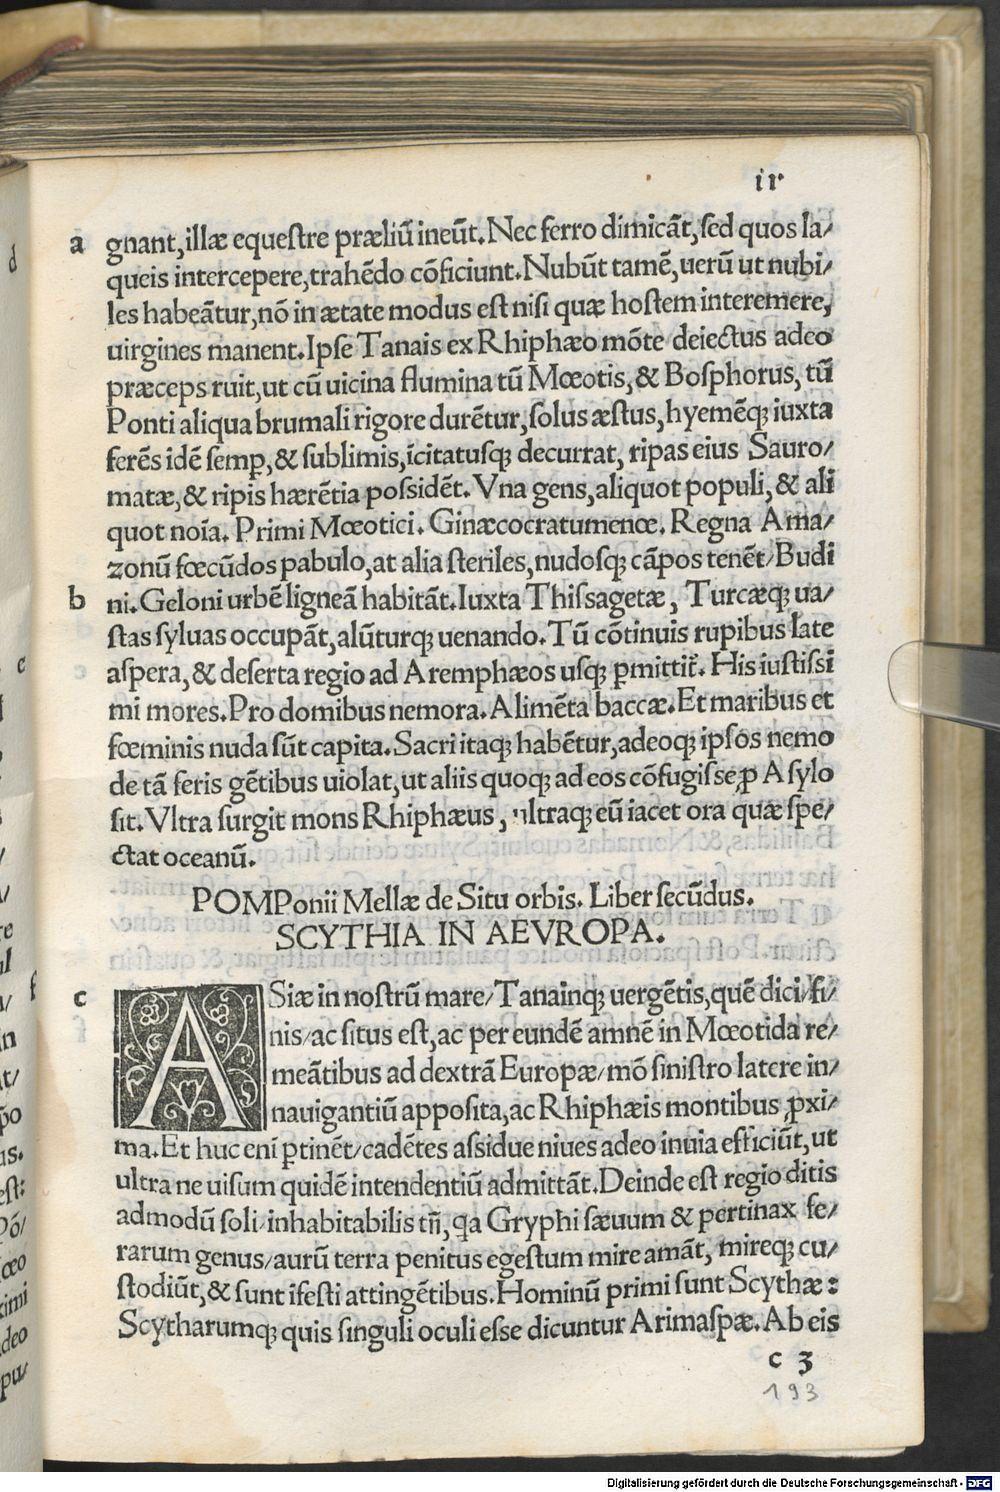 ir
a gnant,illæ equeſtre præliū ineūt.Nec ferro dimicāt,ſed quos la/
queis intercepere,trahēdo cōficiunt.Nubūt tamē,uerū ut nubi/
les habeātur,nō in ætate modus eſt niſi quæ hoſtem interemere,
uirgines manent.Ipſe Tanais ex Rhiphæo mōte deiectus adeo
præceps ruit,ut cū uicina flumina tū Mœotis,& Boſphorus, tū
Ponti aliqua brumali rigore durētur,ſolus æſtus,hyemēqꝫ iuxta
ferēs idē ſemꝑ,& ſublimis,īcitatuſqꝫ decurrat, ripas eius Sauro/
matæ,& ripis hærētia poſsidēt. Vna gens,aliquot populi,& ali
quot noīa. Primi Mœotici. Ginæcocratumenœ. Regna Ama/
zonū fœcūdos pabulo,at alia ſteriles,nudoſqꝫ cāpos tenēt/Budi
b ni.Geloni urbē ligneā habitāt.Iuxta Thiſsagetæ, Turcæqꝫ ua/
ſtas ſyluas occupāt,alūturqꝫ uenando.Tū cōtinuis rupibus late
aſpera,& deſerta regio ad Aremphæos uſqꝫ ꝑmittit̃. His iuſtiſsi
mi mores.Pro domibus nemora.Alimēta baccæ.Et maribus et
fœminis nuda ſūt capita.Sacri itaqꝫ habētur,adeoqꝫ ipſos nemo
de tā feris gētibus uiolat,ut aliis quoqꝫ ad eos cōfugiſse,ꝓ Aſylo
ſit.Vltra ſurgit mons Rhiphæus, ultraqꝫ eū iacet ora quæ ſpe/
ctat oceanū.
POMPonii Mellæ de Situ orbis. Liber ſecūdus.
SCYTHIA IN AEVROPA.
c ASiæ in noſtrū mare/Tanainqꝫ uergētis,quē dici/fi/
nis/ac ſitus eſt,ac per eundē amnē in Mœotida re/
meātibus ad dextrā Europæ/mō ſiniſtro latere in/
nauigantiū appoſita,ac Rhiphæis montibus ꝓxi/
ma.Et huc eni ꝑtinēt/cadētes aſsidue niues adeo inuia efficiūt,ut
ultra ne uiſum quidē intendentiū admittāt.Deinde eſt regio ditis
admodū ſoli/inhabitabilis tñ, qa Gryphi ſæuum & pertinax fe/
rarum genus/aurū terra penitus egeſtum mire amāt, mireqꝫ cu/
ſtodiūt,& ſunt ifeſti attingētibus.Hominū primi ſunt Scythæ:
Scytharumqꝫ quis ſinguli oculi eſse dicuntur Arimaſpæ.Ab eis
c 3
193
Digitalisierung gefördert durch die Deutsche Forschungsgemeinschaft - DFG